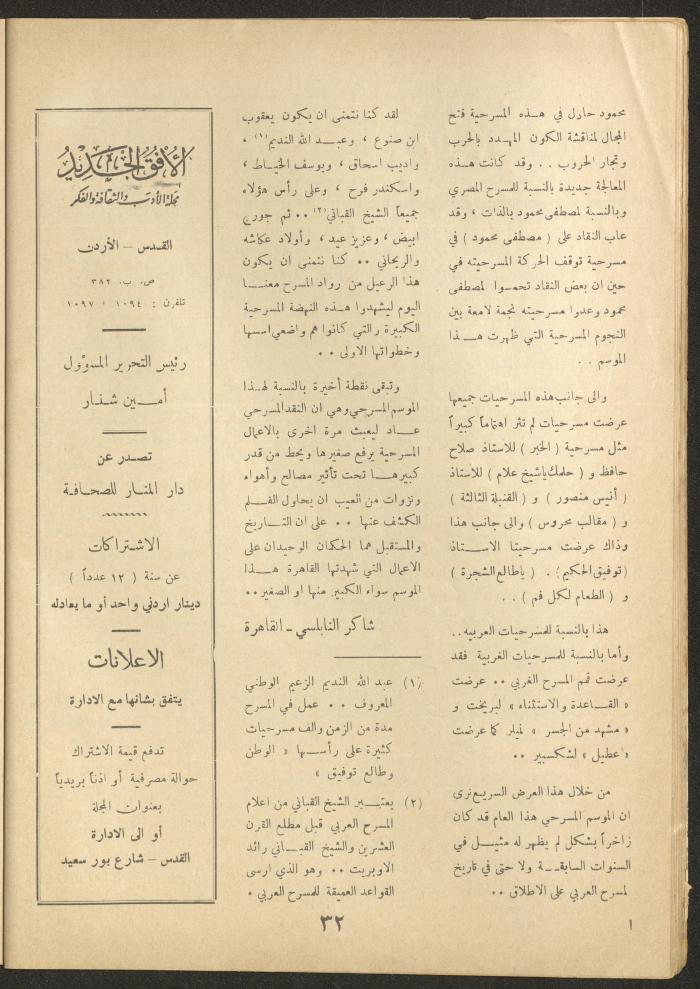 محمود حاول في هذه المسرحية فتح
المجال لمناقشة الكون المهدد بالحرب
وتجار الحروب . . وقد كانت هذه
المعالجة جديدة بالنسبة للمسرح المصري
وبالنسبة لمصطفى محمود بالذات ، وقد
عاب النقاد على ( مصطفى محمود ) في
مسرحية توقف الحركة المسرحيته في
حين ان بعض النقاد تحمسوا لمصطفى
محمود وعدوا مسرحيته نجمة لامعة بين
النجوم المسرحية التي ظهرت هذا
الموسم . .
والى جانب هذه المسرحيات جميعها
عرضت مسرحيات لم تثر اهتماماً كبيراً
مثل مسرحية ( الخبر ) للاستاذ صلاح
حافظ و ( حلمك ياشيخ علام ) للاستاذ
( أنيس منصور ) و ( القنبلة الثالثة )
و ( مقالب محروس ) والى جانب هذا
وذاك عرضت مسرحيتا الاستاذ
( توفيق الحكيم ) . ( ياطالع الشجرة )
و ( الطعام لكل فم ) . .
هذا بالنسبة للمسرحيات العربيه . .
وأما بالنسبة للمسرحيات الغربية فقد
عرضت قمم المسرح الغربي . . عرضت
« القاعدة والاستثناء » لبريخت و
« مشهد من الجسر » لميلر كما عرضت
« عطيل » لشكسبير . .
من خلال هذا العرض السريع نرى
ان الموسم المسرحي هذا العام قد كان
زاخراً بشكل لم يظهر له مثيل في
السنوات السابقة ولا حتى في تاريخ
لمسرح العربي على الاطلاق . .
لقد كنا نتمنى ان يكون يعقوب
ابن صنوع ، وعبد الله النديم (١) ،
واديب اسحاق ، ويوسف الخياط ،
واسكندر فرح ، وعلى رأس هؤلاء
جميعاً الشيخ القباني (٢) . . ثم جورج
ابيض ، وعزيز عيد ، وأولاد عكاشه
والريحاني . . كنا نتمنى ان يكون
هذا الرعيل من رواد المسرح معنا
اليوم ليشهدوا هذه النهضة المسرحية
الكبيرة والتي كانوا هم واضعي اسسها
وخطواتها الاولى . .
وتبقى نقطة أخيرة بالنسبة لهذا
الموسم المسرحي وهي ان النقد المسرحي
عاد ليعبث مرة اخرى بالاعمال
المسرحية يرفع صغيرها ويحط من قدر
كبيرها تحت تأثير مصالح وأهواء
ونزوات من العيب ان يحاول القلم
الكشف عنها . . على ان التاريخ
والمستقبل هما الحكمان الوحيدان على
الاعمال التي شهدتها القاهرة هذا
الموسم سواء الكبير منها او الصغير . .
شاكر النابلسي - القاهرة
(١) عبد الله النديم الزعيم الوطني
المعروف . . عمل في المسرح
مدة من الزمن والف مسرحيات
كثيرة على رأسها « الوطن
وطالع توفيق »
(٢) يعتبر الشيخ القباني من اعلام
المسرح العربي قبل مطلع القرن
العشرين والشيخ القباني رائد
الاوبريت . . وهو الذي ارسى
القواعد العميقة للمسرح العربي .
الأفق الجديد
مجلة الأدب والثقافة والفكر
القدس - الأردن
ص. ب. ٣٨٢
تلفون : ١٠٩٤ ، ١٠٩٧
رئيس التحرير المسؤول
أمين شنار
تصدر عن
دار المنار للصحافة
الاشتراكات
عن سنة ( ١٢ عدداً )
دينار اردني واحد أو ما يعادله
الاعلانات
يتفق بشانها مع الادارة
تدفع قيمة الاشتراك
حوالة مصرفية أو اذناً بريدياً
بعنوان المجلة
أو الى الادارة
القدس - شارع بور سعيد
٣٢
١